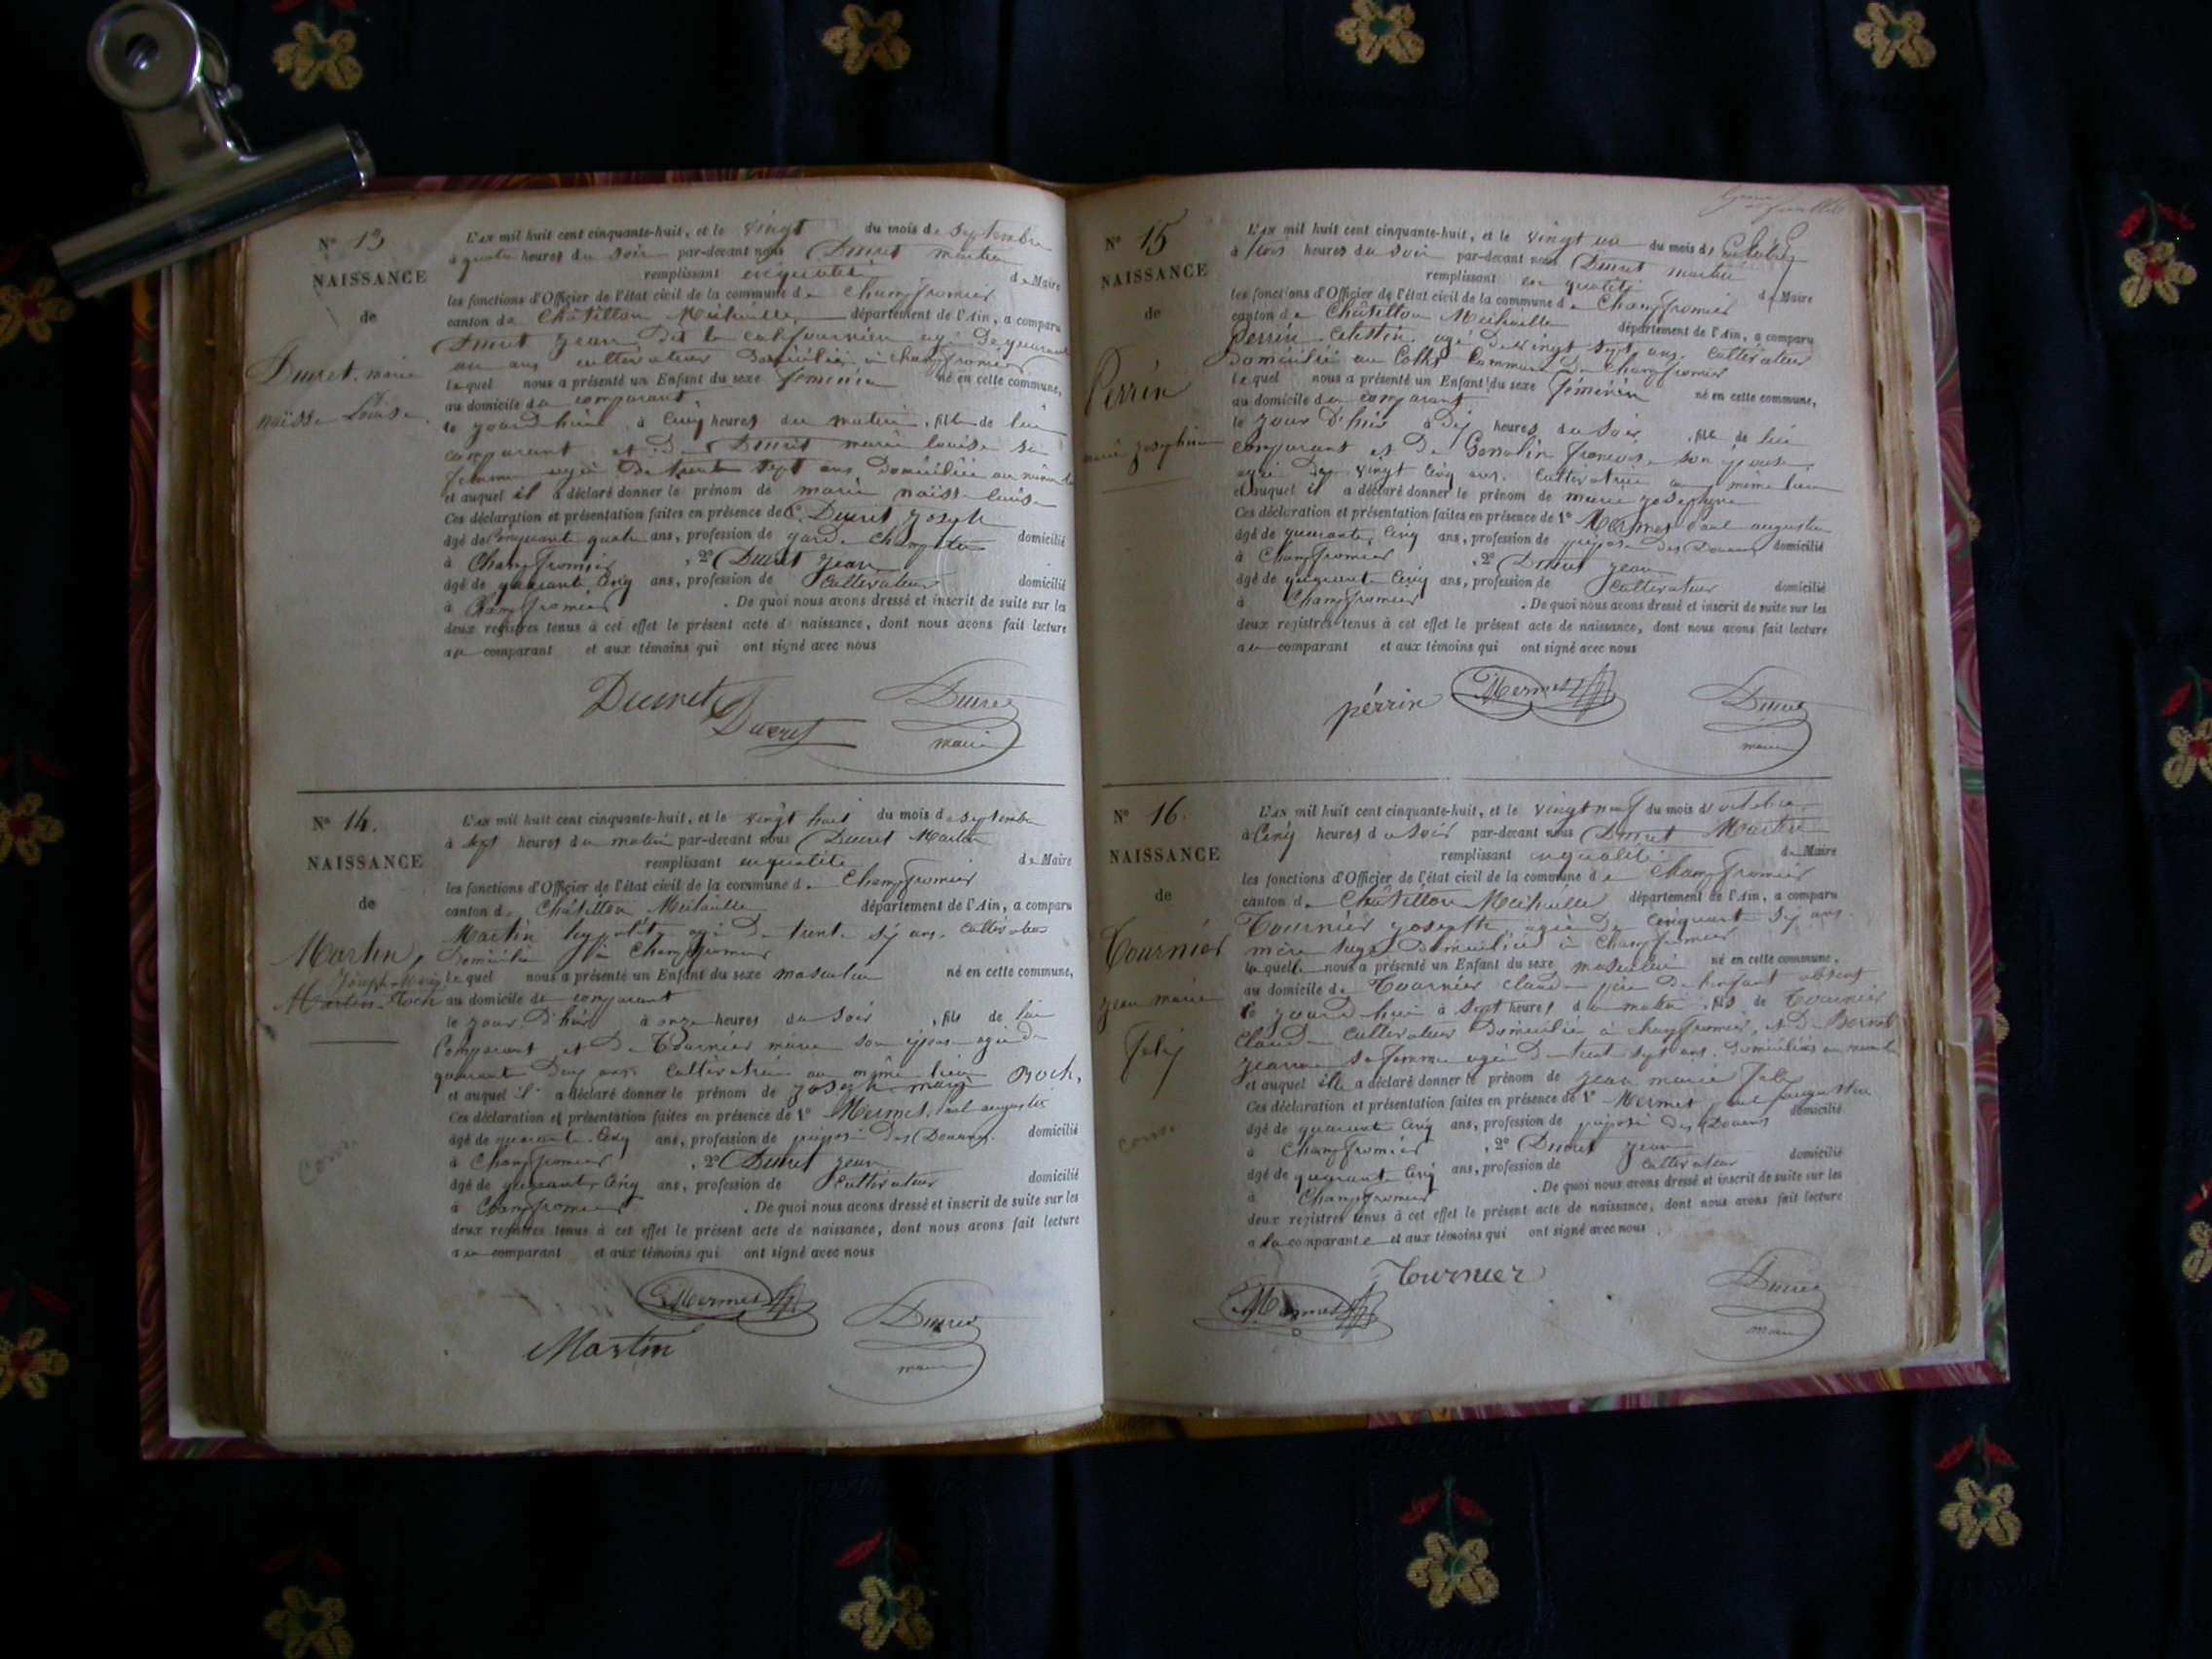 N° 13
NAISSANCE
de
Ducret, marie
naïsse Louise
L'AN mil huit cent cinquante-huit, et le vingt du mois de septembre
à quatre heures du soir par-devant nous Ducret martin
remplissant en qualité de Maire
les fonctions d'Officier de l'état civil de la commune de Champfromier
canton de Châtillon Michaille département de l'Ain, a comparu
Ducret jean, dit le californien agé de quarante
un ans cultivateur domicilié à champfromier
lequel nous a présenté un Enfant du sexe féminin né en cette commune,
au domicile du comparant,
le jourd'hui à cinq heures du matin, fille de lui
comparant et de Ducret marie louise sa
femme agée de trente sept ans domiciliée au même lieu
et auquel il a déclaré donner le prénom de marie naïsse louise
Ces déclaration et présentation faites en présence de Ducret joseph
âgé de cinquante quatre ans, profession de garde champêtre domicilié
à Champfromier, 2° Ducret jean
âgé de quarante cinq ans, profession de cultivateur domicilié
à Champfromier. De quoi nous avons dressé et inscrit de suite sur les
deux registres tenus à cet effet le présent acte de naissance, dont nous avons fait lecture
au comparant et aux témoins qui ont signé avec nous
Ducret
Ducret
Ducret
maire
N° 14.
NAISSANCE
de
Martin,
Joseph-Marie
Martin-Roch
L'AN mil huit cent cinquante-huit, et le vingt huit du mois de septembre
à sept heures du matin par-devant nous Ducret Martin
remplissant en qualité de Maire
les fonctions d'Officier de l'état civil de la commune de Champfromier
canton de Châtillon Michaille département de l'Ain, a comparu
Martin hypolite agé de trente six ans, cultivateur
domicilié à Champfromier
lequel nous a présenté un Enfant du sexe masculin né en cette commune,
au domicile du comparant
le jour d'hier à onze heures du soir, fils de lui
comparant et de Tournier marie son épouse agée de
quarante deux ans cultivatrice au même lieu
et auquel il a déclaré donner le prénom de joseph marie Roch,
Ces déclaration et présentation faites en présence de 1° Mermet, Paul augustin
âgé de quarante cinq ans, profession de préposé des Douanes domicilié
à Champfromier, 2° Ducret jean
âgé de quarante cinq ans, profession de cultivateur domicilié
à Champfromier. De quoi nous avons dressé et inscrit de suite sur les
deux registres tenus à cet effet le présent acte de naissance, dont nous avons fait lecture
au comparant et aux témoins qui ont signé avec nous
Mermet
Martin
Ducret
maire
N° 15
NAISSANCE
de
Perrin
marie josephine
L'AN mil huit cent cinquante-huit, et le vingt un du mois d'octobre
à trois heures du soir par-devant nous Ducret martin
remplissant en qualité de Maire
les fonctions d'Officier de l'état civil de la commune de Champfromier
canton de Châtillon Michaille département de l'Ain, a comparu
Perrin Célestin agé de vingt sept ans. cultivateur
domicilié au Commune de Champfromier
lequel nous a présenté un Enfant du sexe féminin né en cette commune,
au domicile du comparant
le jour d'hier à dix heures du soir, fille de lui
comparant et de françoise son épouse,
agée de vingt cinq ans. cultivatrice au même lieu
et auquel il a déclaré donner le prénom de marie josephine
Ces déclaration et présentation faites en présence de 1° Mermet Paul augustin
âgé de quarante cinq ans, profession de préposé des Douanes domicilié
à Champfromier, 2° Ducret jean
âgé de quarante cinq ans, profession de cultivateur domicilié
à Champfromier. De quoi nous avons dressé et inscrit de suite sur les
deux registres tenus à cet effet le présent acte de naissance, dont nous avons fait lecture
au comparant et aux témoins qui ont signé avec nous
pérrin
Mermet
Ducret
maire
N° 16.
NAISSANCE
de
Tournier
jean marie
felix
L'AN mil huit cent cinquante-huit, et le vingt neuf du mois d'octobre
à cinq heures du soir par-devant nous Ducret Martin
remplissant en qualité de Maire
les fonctions d'Officier de l'état civil de la commune de Champfromier
canton de Châtillon Michaille département de l'Ain, a comparu
Tournier josephte, agée de cinquante six ans.
mère sage domiciliée à Champfromier
laquelle nous a présenté un Enfant du sexe masculin né en cette commune,
au domicile de Tournier claude père de l'enfant absent
le jourd'hui à sept heures du matin, fils de Tournier
claude cultivateur domicilié à champfromier, et de
jeanne sa femme agée de trente sept ans. domiciliés au même lieu
et auquel elle a déclaré donner le prénom de jean marie felix
Ces déclaration et présentation faites en présence de 1° Mermet paul augustin
âgé de quarante cinq ans, profession de préposé des Douanes domicilié
à Champfromier, 2° Ducret jean
âgé de quarante cinq ans, profession de cultivateur domicilié
à Champfromier. De quoi nous avons dressé et inscrit de suite sur les
deux registres tenus à cet effet le présent acte de naissance, dont nous avons fait lecture
a la comparante et aux témoins qui ont signé avec nous.
Tournier
Mermet
Ducret
maire